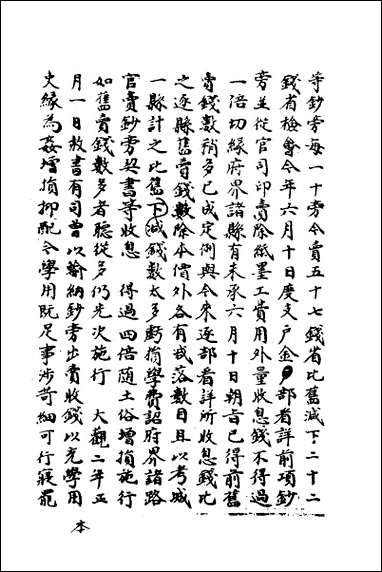 等鈔旁每一十旁今賣五十七錢省比舊減下二十二
錢省檢會今年六月十日度支戶金部看詳前項鈔
旁並從官司印賣除紙墨工費用外量收息錢不得過
一倍切緣府界諸縣有未承六月十日朔旨已得前舊
賣錢數稍多已成定例與今來逐部看詳所收息錢比
之逐縣舊賣錢數除本價外各有或落數目且以考城
一縣計之比舊下減錢數太多虧損學費詔府界諸路
官賣鈔旁契書等收息　得過四倍隨土俗增損施行
如舊賣錢數多者聽從多仍先次施行　大觀二年正
月一日赦書有司曹以輸納鈔旁出賣收錢以充學用
史緣為姦增損抑配今學用既足事涉苛細可行寢罷
本